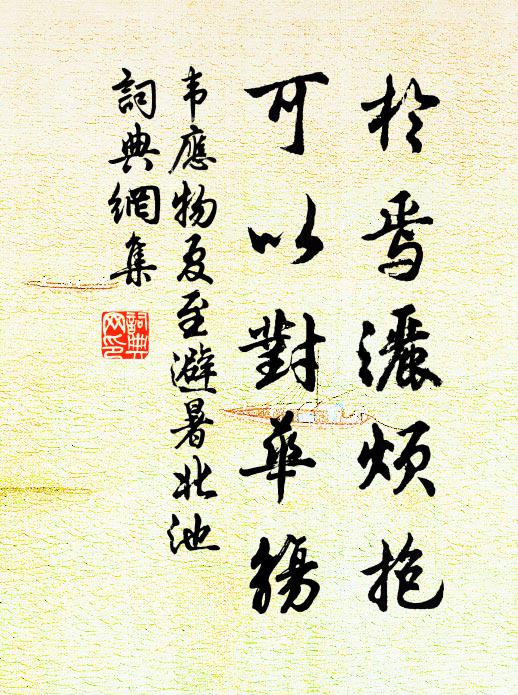 於焉灑煩抱
可以對華觴
韦應物夏至避暑北池
詞典網集
詞典网印